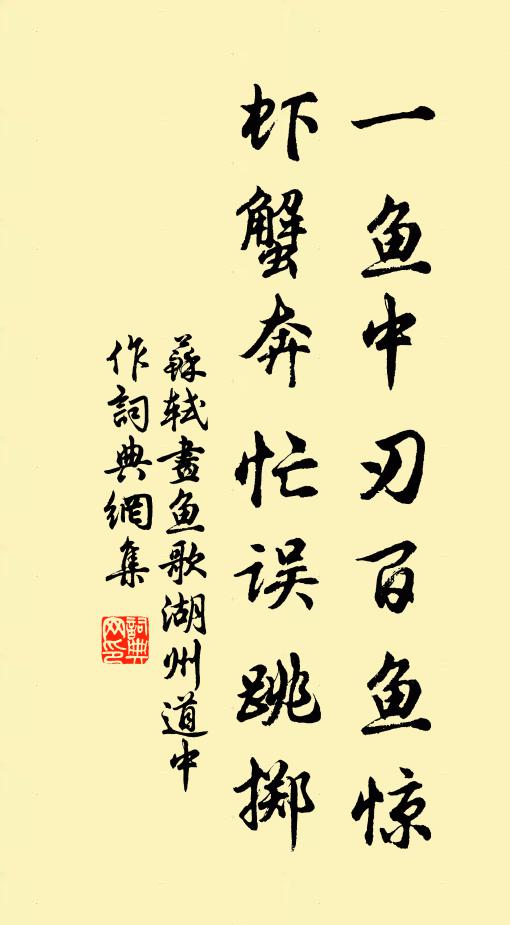 一鱼中刃百鱼惊
虾蟹奔忙误跳掷
蘇轼畫鱼歌湖州道中
作詞典網集
詞典
网印